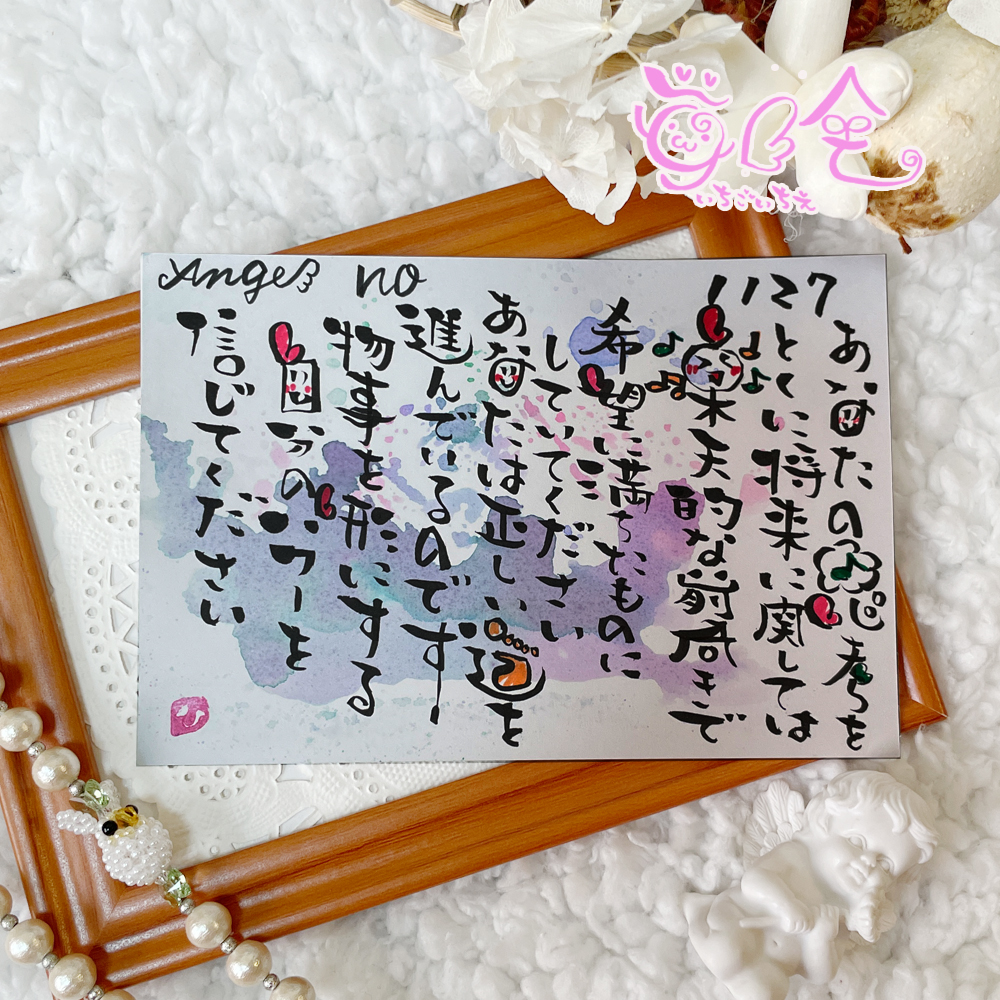 Angel no 1127
あなたの思考を
とくに将来に関しては
楽天的な前向きで
希望に満ちたものに
していてください
あなたは正しい道を
進んでいるのです
物事を形にする
自分のパワーを
信じてください
いちごいちえ